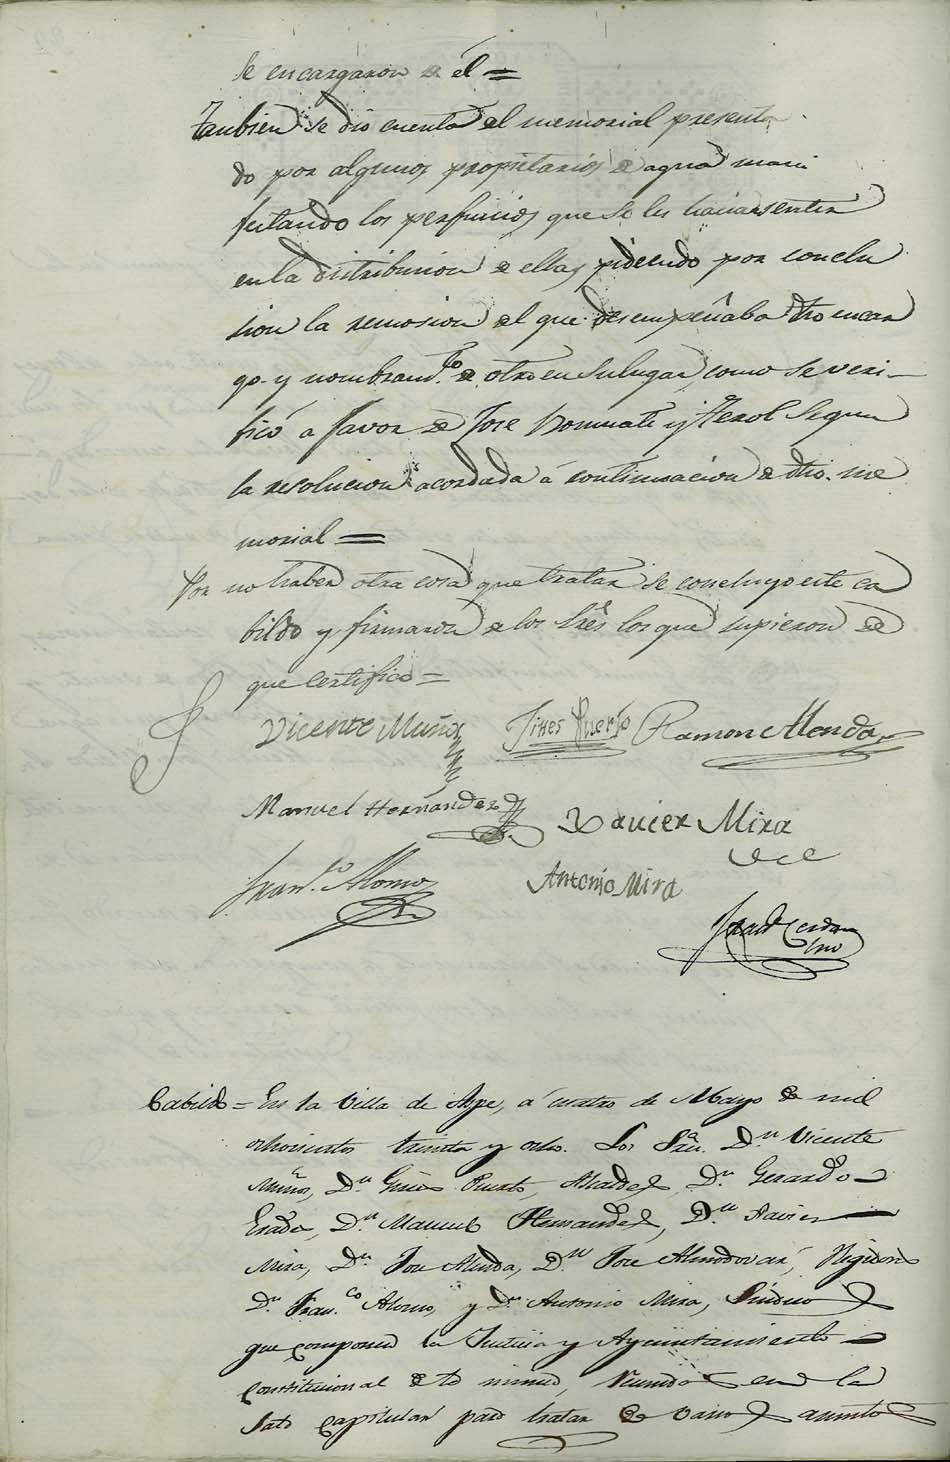 se encargaron de él =
Tanbien se dio cuenta del memorial presenta
do por algunos propietarios de agua mani
festando los perjuicios que se les hacian sentir
en la distribucion de ellas pidiendo por conclu
sion la remosion del que desempeñaba dho encar
go y nombramto. de otro en su lugar, como se veri-
ficó a favor de Jose y Ferol segun
la resolucion acordada á continuacion de dho. me
morial =
Por no haber otra cosa que tratar se concluyo este ca
bildo y firmaron de los Sres los que supieron de
que Certifico =
Vicente Muñoz Jines Puerto Ramon Alenda
Manuel Hernandez Xavier Mira
Franco. Alonso Antonio Mira
Cerdan
Cabildo = En la Villa de Aspe, á cuatro de Mayo de mil
ochocientos treinta y ocho. Los Sres. Dn. Vicente
Muñoz, Dn. Gines Puerto, Alcaldes, Dn. Gerardo
Dn. Manuel Hernandez, Dn. Xavier
Mira, Dn. Jose Alenda, Dn. Jose Almodovar, Regidores
Dn. Franco. Alonso, y Dn. Antonio Mira, Sindicos
que componen la Justicia y Ayuntamiento
constitucional de la misma, reunidos en la
Sala capitular para tratar de varios asuntos